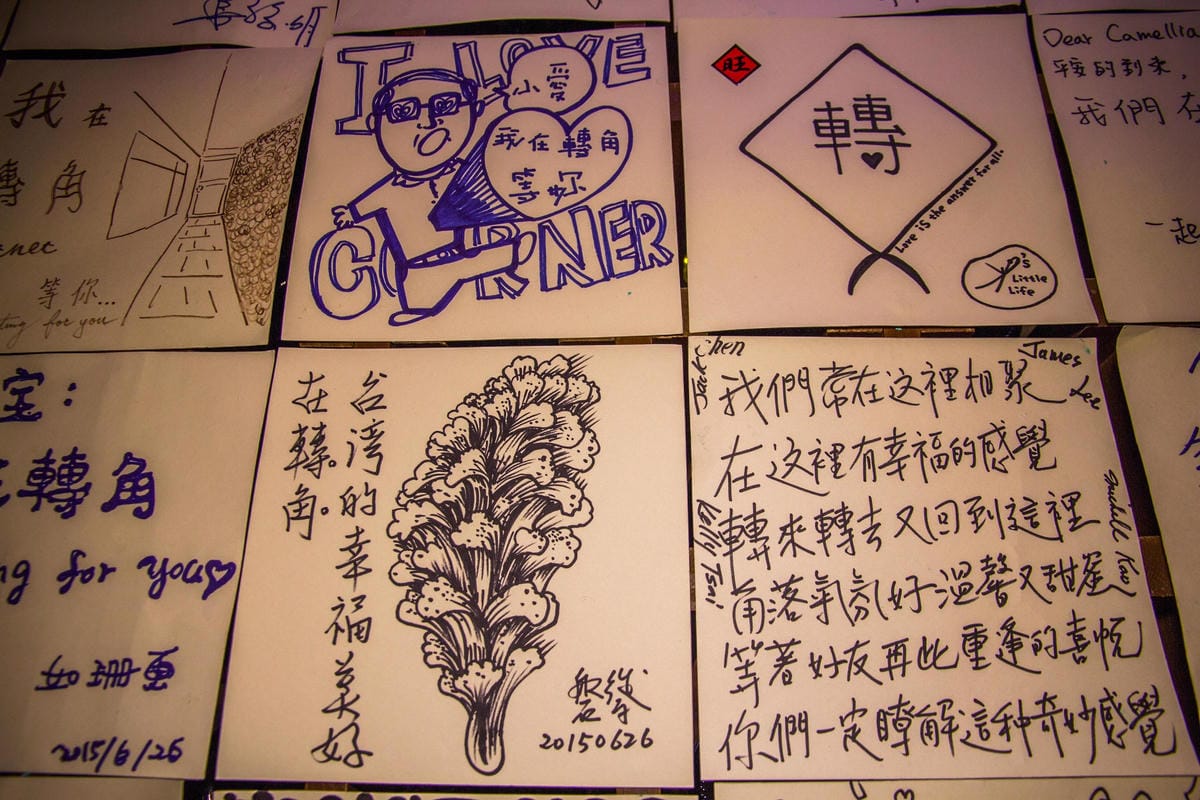 我在
轉角
等你...
ting for you
I LOVE
小愛
我在轉角
等妳
CORNER
旺
轉
Love is the answer for all.
's
Little
Life
Dear Camellia
我們在
一起
宝:
轉角
ng for you
2015/6/26
台湾的幸福美好
在轉角。
20150626
Jack Chen
James Lee
我們常在这裡相聚
在这裡有幸福的感覺
轉來轉去又回到這裡
角落氣氛好溫馨又甜蜜
等著好友再此重逢的喜悅
你們一定瞭解這种奇妙感覺
Kelly Tsai